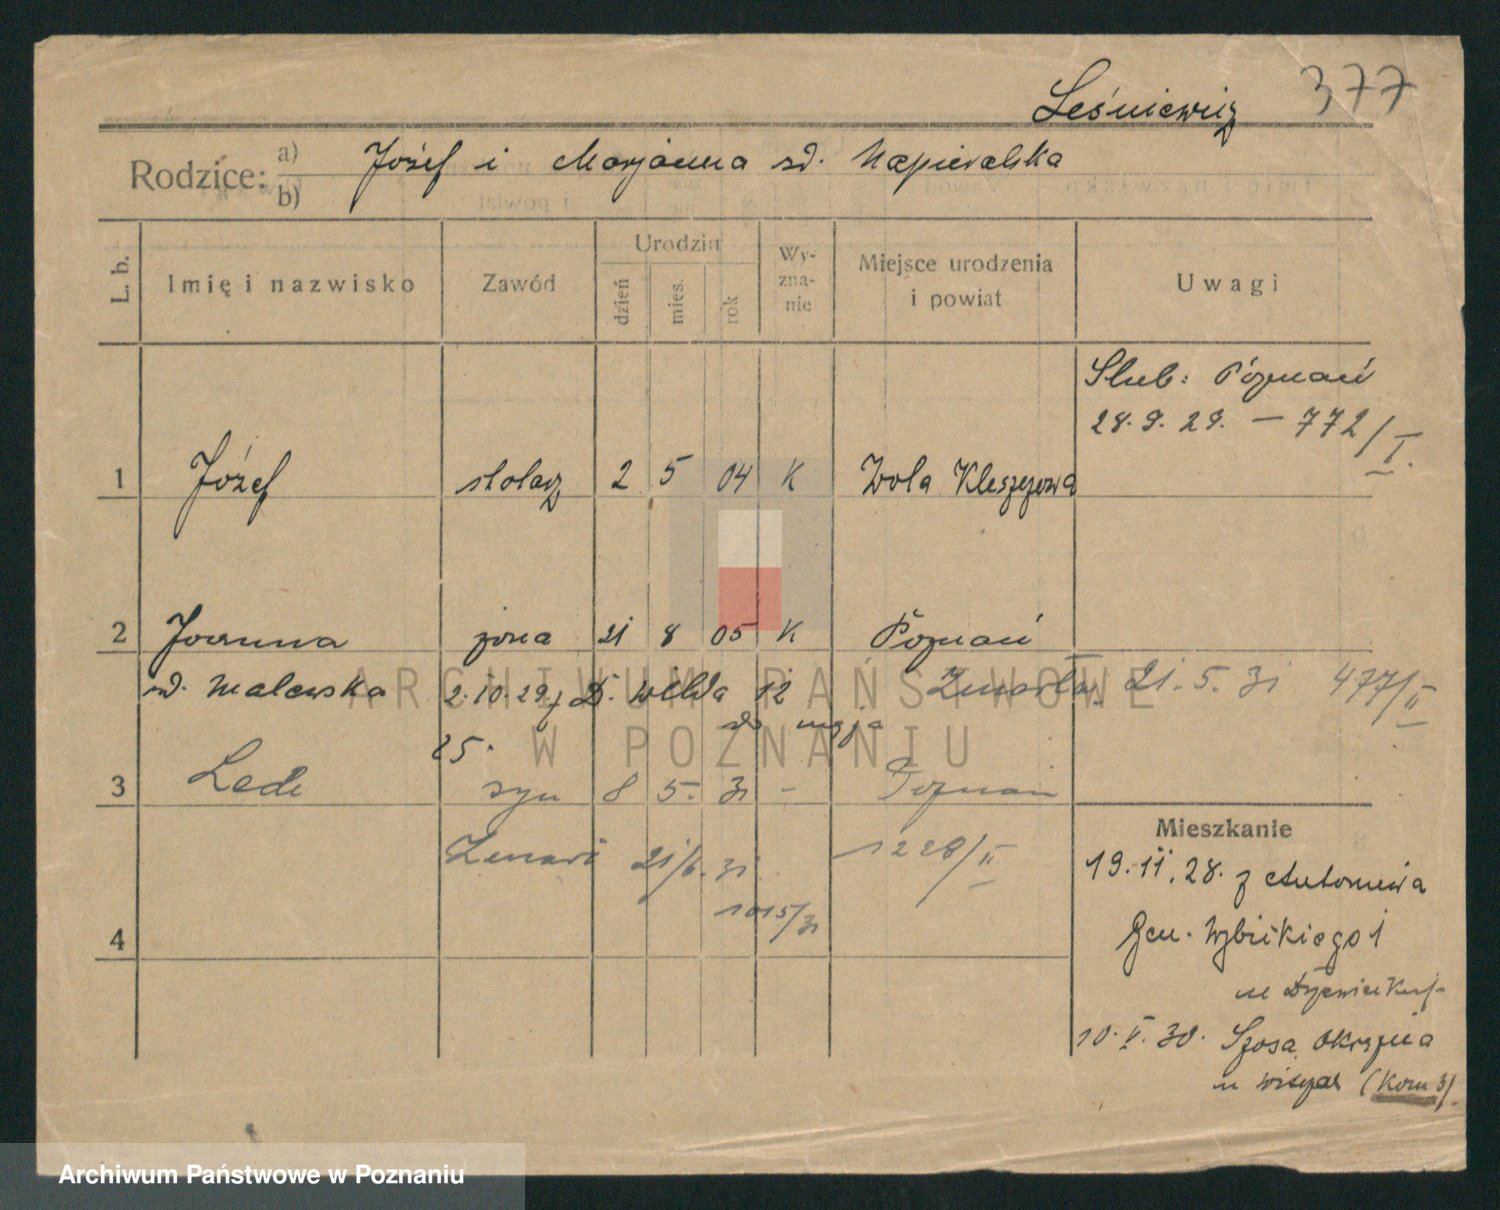 Leśniewicz 377
Rodzice: a) b) Józef i Marjanna zd. Napieralska
L. b. Imię i nazwisko Zawód Urodzin dzień mies. rok Wyznanie Miejsce urodzenia i powiat Uwagi
Ślub: Poznań
28. 9. 29. — 772/I.
1 Józef stolarz 2 5 04 K Wola
2 Joanna żona 21 8 05 K Poznań
zd. Malewska 2. 10. 29 z D. Wilda 12 Zmarła 21. 5. 31 477/II
do męża
25.
3 Lech syn 8 5. 31 - Poznań
Zmarł 21/6. 31 1228/II
1015/31
4
Mieszkanie
19. 11. 28. z Antonina
Gen. Wybickiego 1
u
10. V. 30. Szosa Okrężna
u (Kom 3).
ARCHIWUM PAŃSTWOWE
W POZNANIU
Archiwum Państwowe w Poznaniu